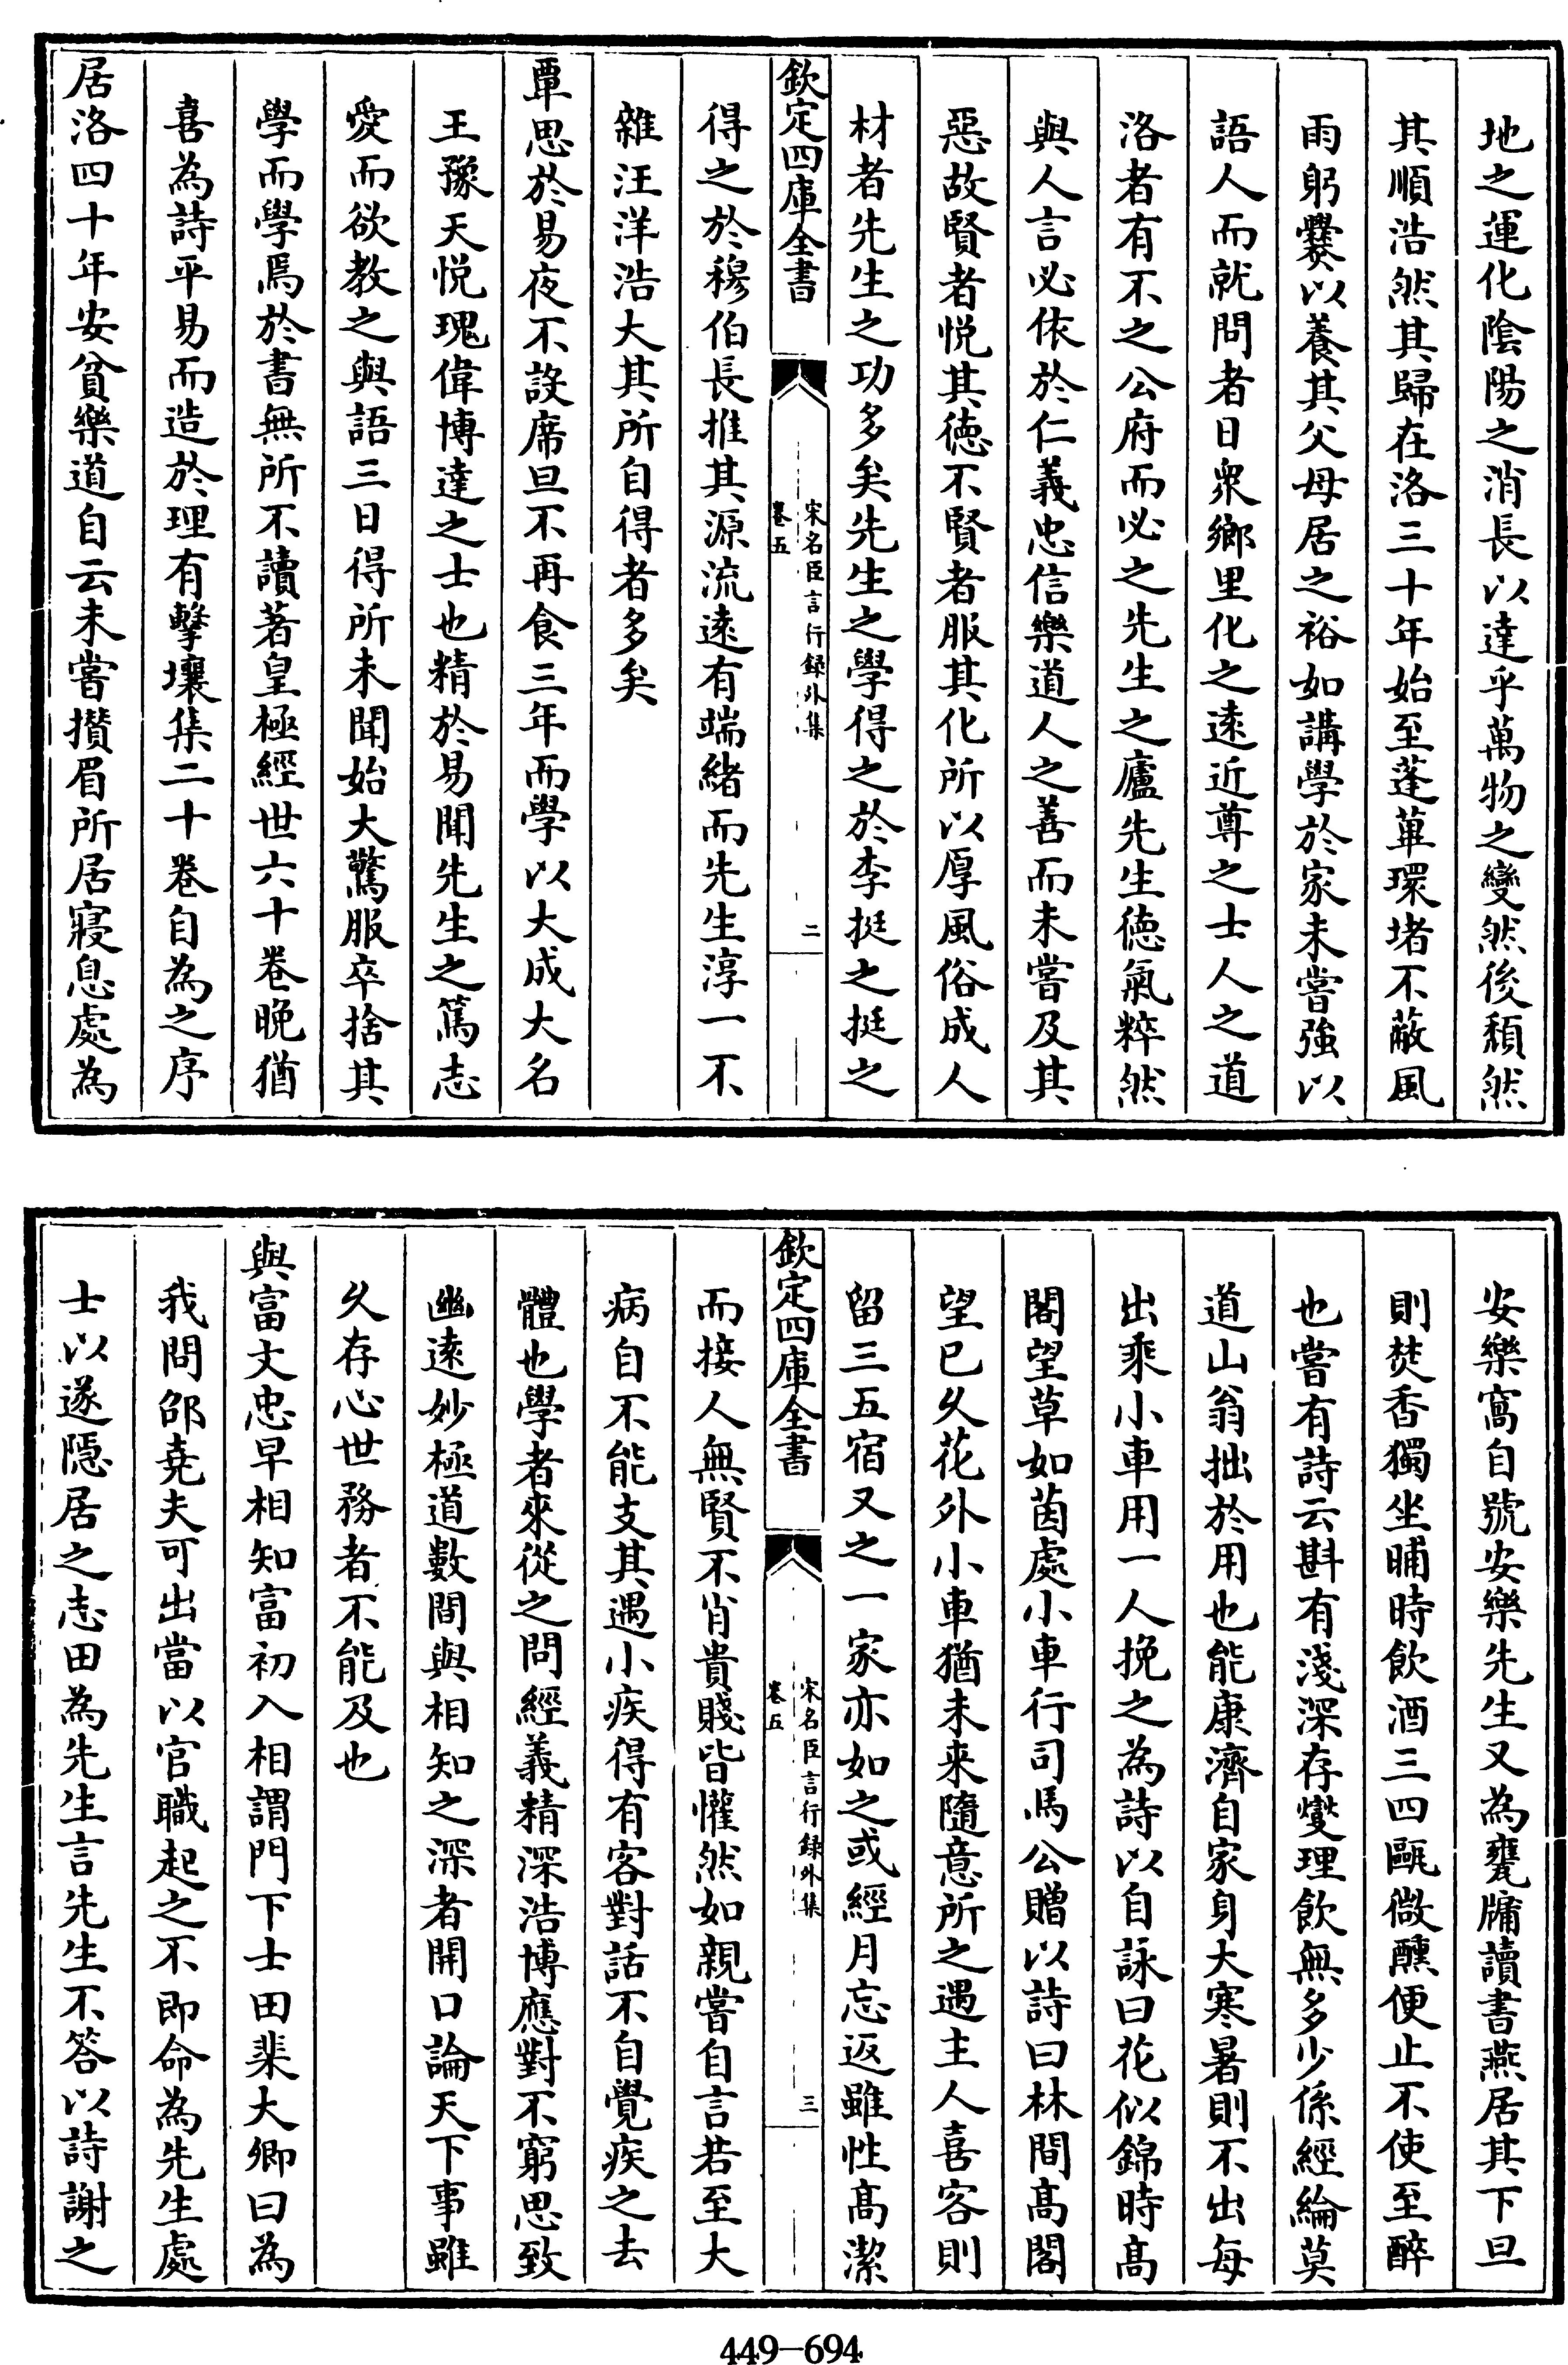 地之運化陰陽之消長以達乎萬物之變然後頹然
其順浩然其歸在洛三十年始至蓬蓽環堵不蔽風
雨躬爨以養其父母居之裕如講學於家未嘗強以
語人而就問者日衆鄉里化之逺近尊之士人之道
洛者有不之公府而必之先生之廬先生徳氣粹然
與人言必依於仁義忠信樂道人之善而未嘗及其
惡故賢者悦其徳不賢者服其化所以厚風俗成人
材者先生之功多矣先生之學得之於李挺之挺之
欽定四庫全書
宋名臣言行録外集
卷五
二
得之於穆伯長推其源流逺有端緒而先生淳一不
雜汪洋浩大其所自得者多矣
覃思於易夜不設席旦不再食三年而學以大成大名
王豫天悦瑰偉博達之士也精於易聞先生之篤志
愛而欲教之與語三日得所未聞始大驚服卒捨其
學而學焉於書無所不讀著皇極經世六十卷晚猶
喜為詩平易而造於理有擊壤集二十卷自為之序
居洛四十年安貧樂道自云未嘗攢眉所居寢息處為
安樂窩自號安樂先生又為甕牖讀書燕居其下旦
則焚香獨坐晡時飲酒三四甌微醺便止不使至醉
也嘗有詩云斟有淺深存燮理飲無多少係經綸莫
道山翁拙於用也能康濟自家身大寒暑則不出每
出乘小車用一人挽之為詩以自詠曰花似錦時髙
閣望草如茵處小車行司馬公贈以詩曰林間髙閣
望已乆花外小車猶未來隨意所之遇主人喜客則
留三五宿又之一家亦如之或經月忘返雖性髙潔
欽定四庫全書
宋名臣言行録外集
卷五
三
而接人無賢不肖貴賤皆懽然如親嘗自言若至大
病自不能支其遇小疾得有客對話不自覺疾之去
體也學者來從之問經義精深浩博應對不窮思致
幽逺妙極道數間與相知之深者開口論天下事雖
乆存心世務者不能及也
與富文忠早相知富初入相謂門下士田棐大卿曰為
我問邵堯夫可出當以官職起之不即命為先生處
士以遂隠居之志田為先生言先生不答以詩謝之
449-694